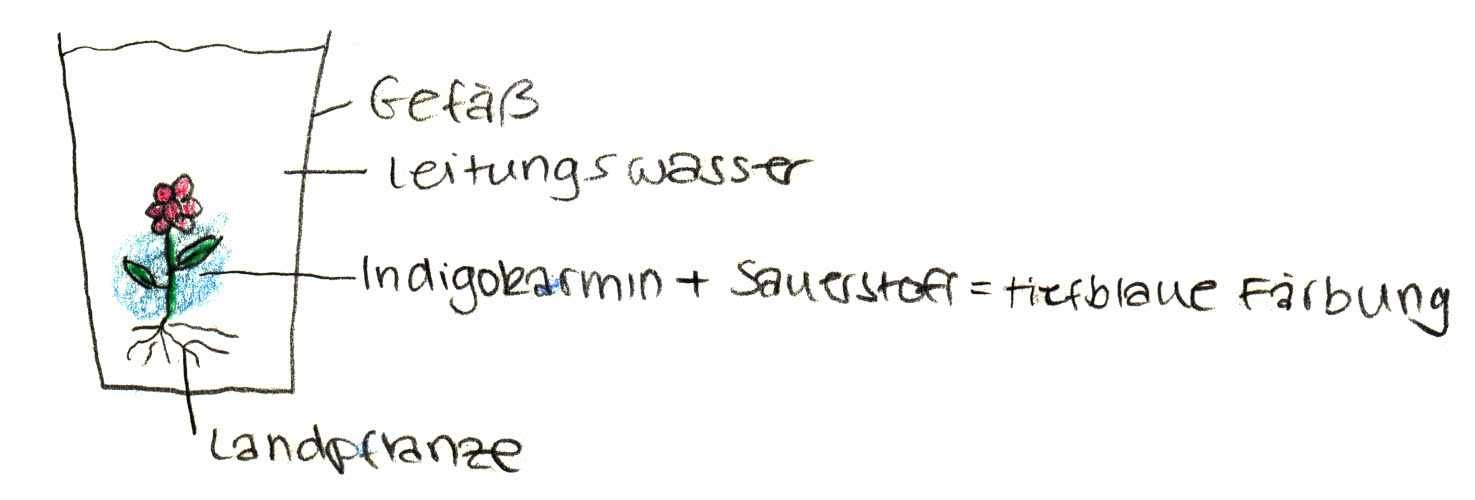 Gefäß
Leitungswasser
Indigokarmin + Sauerstoff = tiefblaue Färbung
Landpflanze